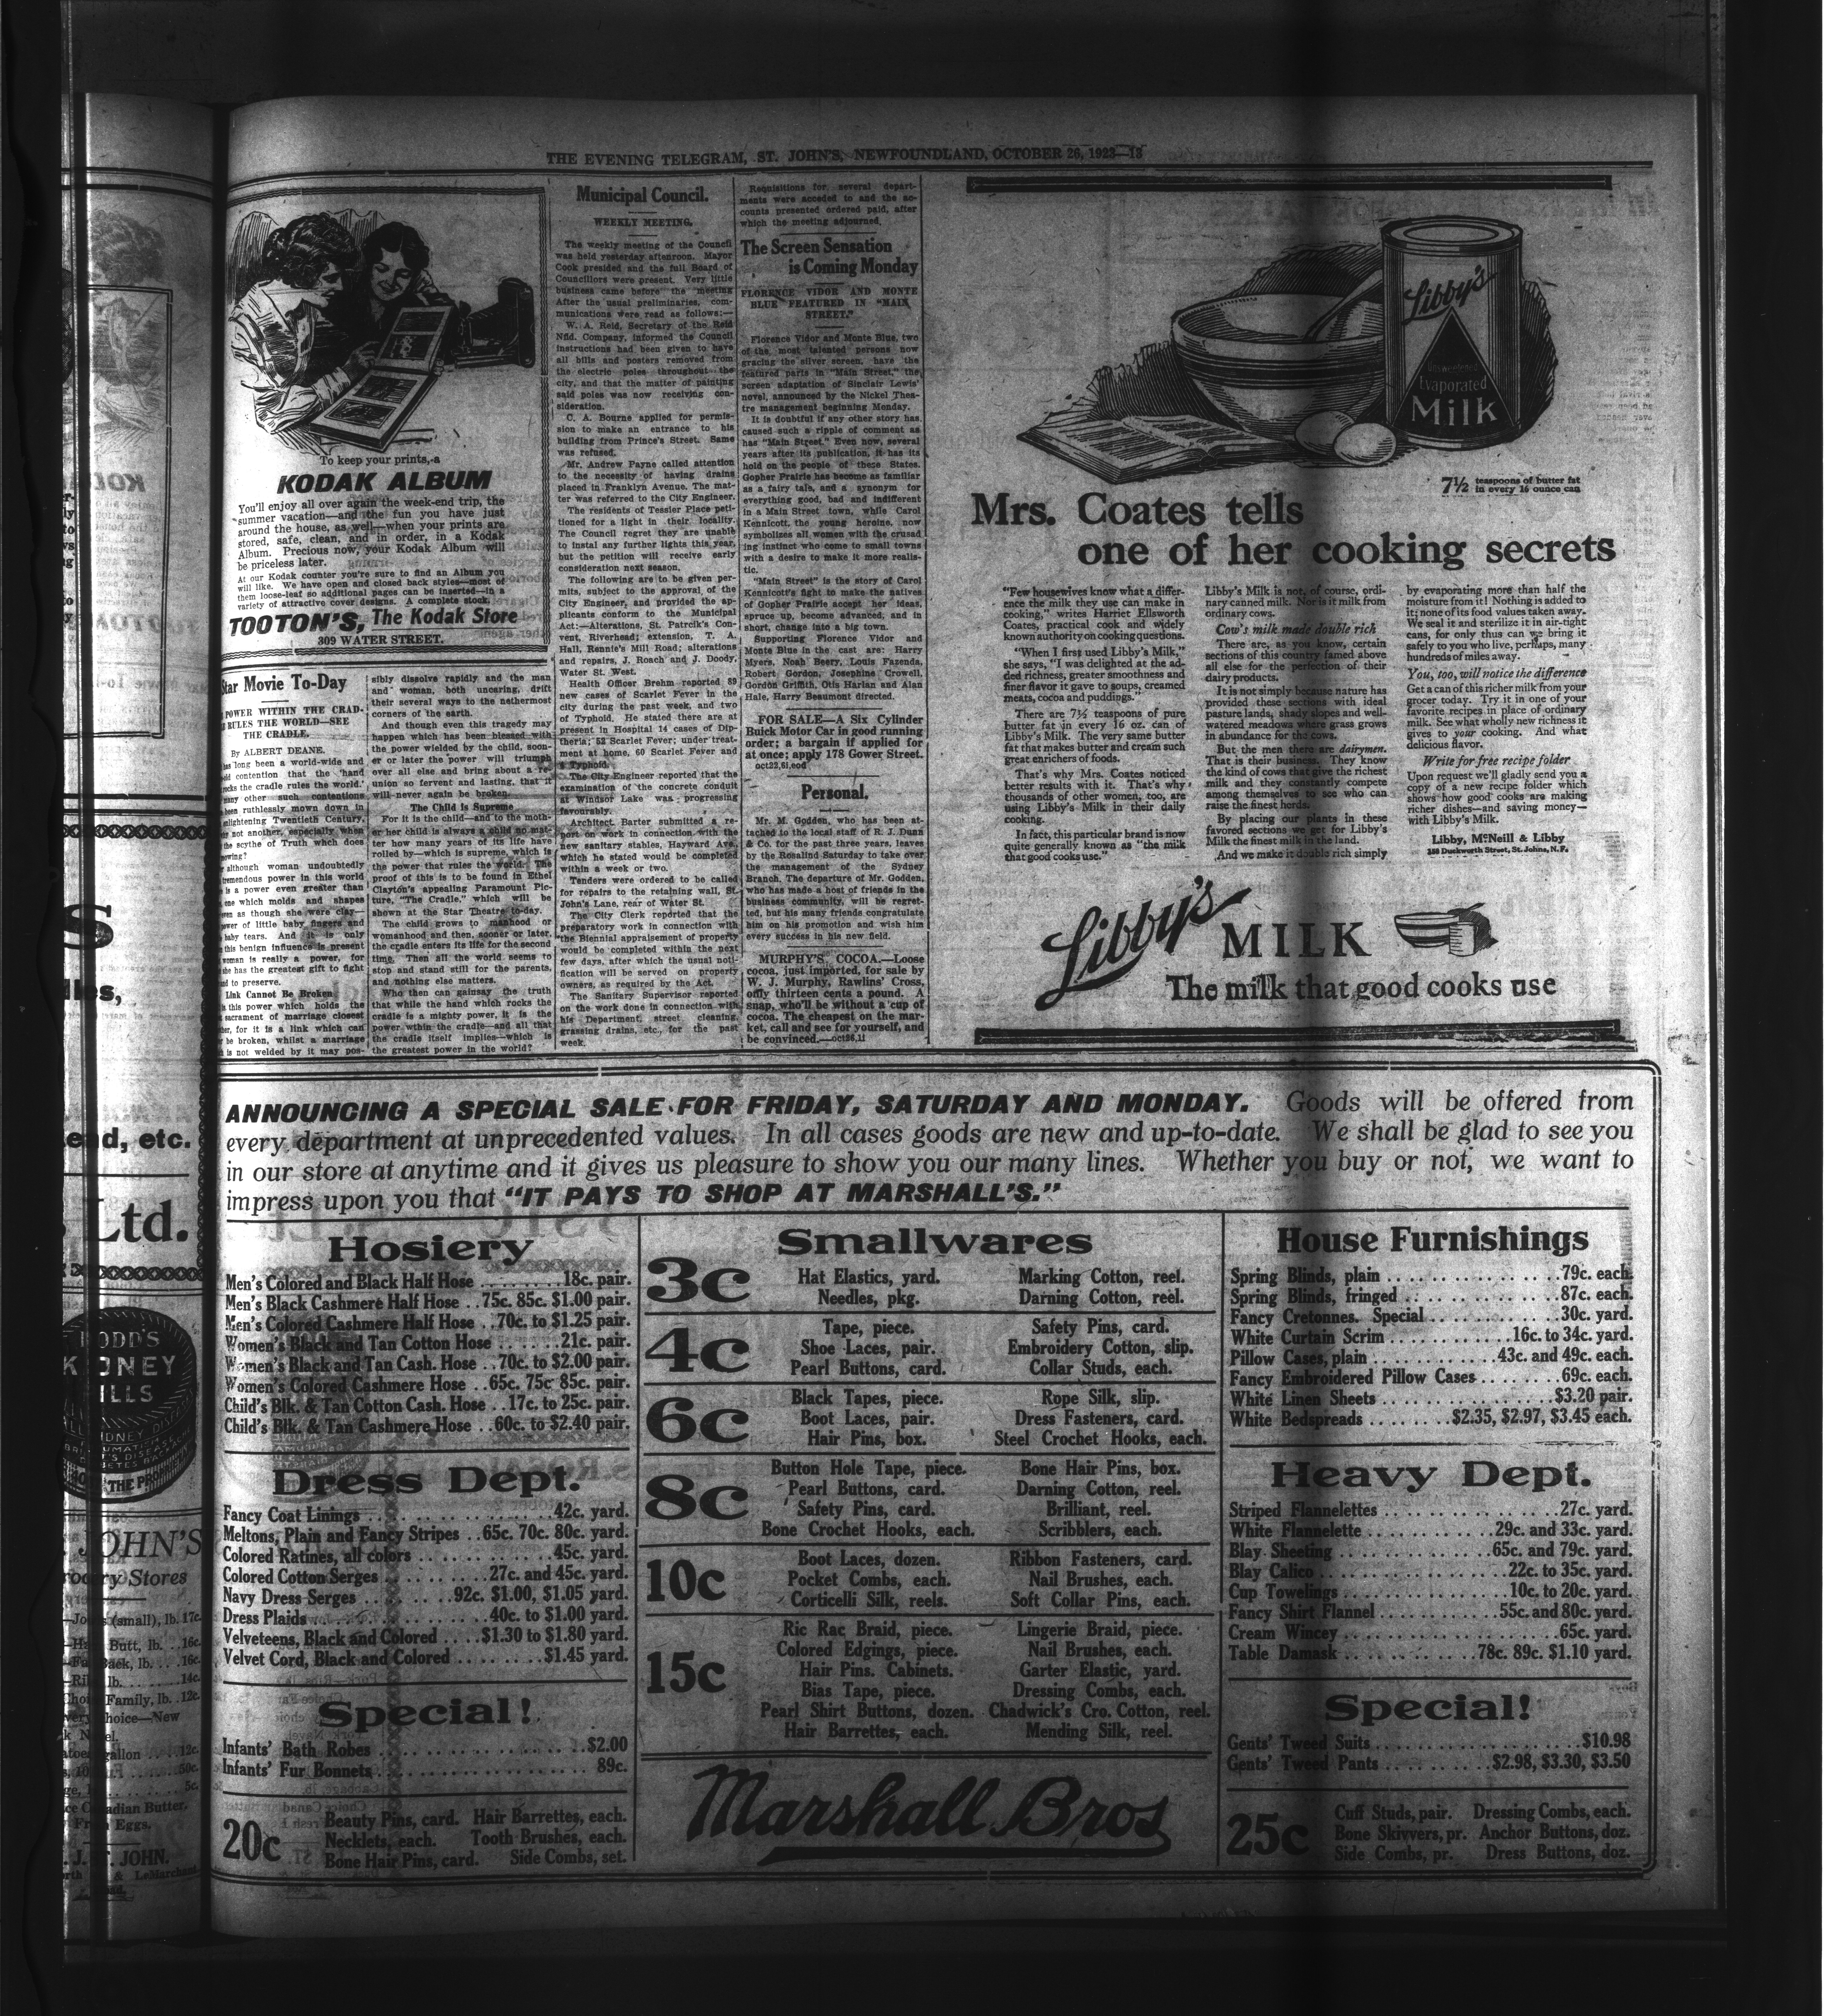 THE EVENING TELEGRAM, ST. JOHN'S, NEWFOUNDLAND, OCTOBER 26, 1923—13
To keep your prints, a
KODAK ALBUM
You'll enjoy all over again the week-end trip, the
summer vacation—and the fun you have just
around the house, as well—when your prints are
stored, safe, clean, and in order, in a Kodak
Album. Precious now, your Kodak Album will
be priceless later.
At our Kodak counter you're sure to find an Album you
will like. We have open and closed back styles—most of
them loose-leaf so additional pages can be inserted—in a
variety of attractive cover designs. A complete stock.
TOOTON'S, The Kodak Store
309 WATER STREET.
Star Movie To-Day
POWER WITHIN THE CRAD-
RULES THE WORLD—SEE
THE CRADLE.
By ALBERT DEANE.
long been a world-wide and
contention that the 'hand
rocks the cradle rules the world.'
many other such contentions
been ruthlessly mown down in
enlightening Twentieth Century,
not another, especially when
the scythe of Truth which does
mowing?
although woman undoubtedly
tremendous power in this world
is a power even greater than
one which molds and shapes
even as though she were clay—
power of little baby fingers and
baby tears. And it is only
this benign influence is present
woman is really a power, for
she has the greatest gift to fight
and to preserve.
Link Cannot Be Broken
this power which holds the
sacrament of marriage closest
for it is a link which can
be broken, whilst a marriage
is not welded by it may pos-
sibly dissolve rapidly and the man
and woman, both uncaring, drift
their several ways to the nethermost
corners of the earth.
And though even this tragedy may
happen which has been blessed with
the power wielded by the child, soon-
er or later the power will triumph
over all else and bring about a re-
union so fervent and lasting, that it
will never again be broken.
The Child is Supreme
For it is the child—and to the moth-
er her child is always a child no mat-
ter how many years of its life have
rolled by—which is supreme, which is
the power that rules the world. The
proof of this is to be found in Ethel
Clayton's appealing Paramount Pic-
ture, "The Cradle," which will be
shown at the Star Theatre to-day.
The child grows to manhood or
womanhood and then, sooner or later,
the cradle enters its life for the second
time. Then all the world seems to
stop and stand still for the parents,
and nothing else matters.
Who then can gainsay the truth
that while the hand which rocks the
cradle is a mighty power, it is the
power within the cradle—and all that
the cradle itself implies—which is
the greatest power in the world?
Municipal Council.
WEEKLY MEETING.
The weekly meeting of the Council
was held yesterday afternoon. Mayor
Cook presided and the full Board of
Councillors were present. Very little
business came before the meeting
After the usual preliminaries, com-
munications were read as follows:—
W. A. Reid, Secretary of the Reid
Nfld. Company, informed the Council
instructions had been given to have
all bills and posters removed from
the electric poles throughout the
city, and that the matter of painting
said poles was now receiving con-
sideration.
C. A. Bourne applied for permis-
sion to make an entrance to his
building from Prince's Street. Same
was refused.
Mr. Andrew Payne called attention
to the necessity of having drains
placed in Franklyn Avenue. The mat-
ter was referred to the City Engineer.
The residents of Tessier Place peti-
tioned for a light in their locality.
The Council regret they are unable
to instal any further lights this year,
but the petition will receive early
consideration next season.
The following are to be given per-
mits, subject to the approval of the
City Engineer, and provided the ap-
plicants conform to the Municipal
Act:—Alterations, St. Patrcik's Con-
vent, Riverhead; extension, T. A.
Hall, Rennie's Mill Road; alterations
and repairs, J. Roach and J. Doody,
Water St. West.
Health Officer Brehm reported 89
new cases of Scarlet Fever in the
city during the past week, and two
of Typhoid. He stated there are at
present in Hospital 14 cases of Dip-
theria; 53 Scarlet Fever; under treat-
ment at home, 60 Scarlet Fever and
Typhoid.
The City Engineer reported that the
examination of the concrete conduit
at Windsor Lake was progressing
favourably.
Architect. Barter submitted a re-
port on work in connection with the
new sanitary stables, Hayward Ave.,
which he stated would be completed
within a week or two.
Tenders were ordered to be called
for repairs to the retaining wall, St.
John's Lane, rear of Water St.
The City Clerk reported that the
preparatory work in connection with
the Biennial appraisement of property
would be completed within the next
few days, after which the usual noti-
fication will be served on property
owners, as required by the Act.
The Sanitary Supervisor reported
on the work done in connection with
his Department, street cleaning,
grassing drains, etc., for the past
week.
Requisitions for several depart-
ments were acceded to and the ac-
counts presented ordered paid, after
which the meeting adjourned.
The Screen Sensation
is Coming Monday
FLORENCE VIDOR AND MONTE
BLUE FEATURED IN "MAIN
STREET."
Florence Vidor and Monte Blue, two
of the most talented persons now
gracing the silver screen, have the
featured parts in "Main Street," the
screen adaptation of Sinclair Lewis'
novel, announced by the Nickel Thea-
tre management beginning Monday.
It is doubtful if any other story has
caused such a ripple of comment as
has "Main Street." Even now, several
years after its publication, it has its
hold on the people of these States.
Gopher Prairie has become as familiar
as a fairy tale, and a synonym for
everything good, bad and indifferent
in a Main Street town, while Carol
Kennicott, the young heroine, now
symbolizes all women with the crusad
ing instinct who come to small towns
with a desire to make it more realis-
tic.
"Main Street" is the story of Carol
Kennicott's fight to make the natives
of Gopher Prairie accept her ideas,
spruce up, become advanced, and in
short, change into a big town.
Supporting Florence Vidor and
Monte Blue in the cast are: Harry
Myers, Noah Beery, Louis Fazenda,
Robert Gordon, Josephine Crowell,
Gordon Griffith, Otis Harlan and Alan
Hale, Harry Beaumont directed.
FOR SALE—A Six Cylinder
Buick Motor Car in good running
order; a bargain if applied for
at once; apply 178 Gower Street.
oct22,6i,eod
Personal.
Mr. M. Godden, who has been at-
tached to the local staff of R. J. Dunn
& Co. for the past three years, leaves
by the Rosalind Saturday to take over
the management of the Sydney
Branch. The departure of Mr. Godden,
who has made a host of friends in the
business community, will be regret-
ted, but his many friends congratulate
him on his promotion and wish him
every success in his new field.
MURPHY'S COCOA.—Loose
cocoa, just imported, for sale by
W. J. Murphy, Rawlins' Cross,
only thirteen cents a pound. A
snap, who'll be without a cup of
cocoa. The cheapest on the mar-
ket, call and see for yourself, and
be convinced.—oct26,1i
Libby's
Unsweetened
Evaporated
Milk
7½ teaspoons of butter fat
in every 16 ounce can
Mrs. Coates tells
one of her cooking secrets
"Few housewives know what a differ-
ence the milk they use can make in
cooking," writes Harriet Ellsworth
Coates, practical cook and widely
known authority on cooking questions.
"When I first used Libby's Milk,"
she says, "I was delighted at the ad-
ded richness, greater smoothness and
finer flavor it gave to soups, creamed
meats, cocoa and puddings."
There are 7½ teaspoons of pure
butter fat in every 16 oz. can of
Libby's Milk. The very same butter
fat that makes butter and cream such
great enrichers of foods.
That's why Mrs. Coates noticed
better results with it. That's why
thousands of other women, too, are
using Libby's Milk in their daily
cooking.
In fact, this particular brand is now
quite generally known as "the milk
that good cooks use."
Libby's Milk is not, of course, ordi-
nary canned milk. Nor is it milk from
ordinary cows.
Cow's milk made double rich
There are, as you know, certain
sections of this country famed above
all else for the perfection of their
dairy products.
It is not simply because nature has
provided these sections with ideal
pasture lands, shady slopes and well-
watered meadows where grass grows
in abundance for the cows.
But the men there are dairymen.
That is their business. They know
the kind of cows that give the richest
milk and they constantly compete
among themselves to see who can
raise the finest herds.
By placing our plants in these
favored sections we get for Libby's
Milk the finest milk in the land.
And we make it double rich simply
by evaporating more than half the
moisture from it! Nothing is added to
it; none of its food values taken away.
We seal and sterilize it in air-tight
cans, for only thus can we bring it
safely to you who live, perhaps, many
hundreds of miles away.
You, too, will notice the difference
Get a can of this richer milk from your
grocer today. Try it in one of your
favorite recipes in place of ordinary
milk. See what wholly new richness it
gives to your cooking. And what
delicious flavor.
Write for free recipe folder
Upon request we'll gladly send you a
copy of a new recipe folder which
shows how good cooks are making
richer dishes—and saving money—
with Libby's Milk.
Libby, McNeill & Libby
Duckworth Street, St. Johns, N. F.
Libby's MILK
The milk that good cooks use
ANNOUNCING A SPECIAL SALE FOR FRIDAY, SATURDAY AND MONDAY. Goods will be offered from
every department at unprecedented values. In all cases goods are new and up-to-date. We shall be glad to see you
in our store at anytime and it gives us pleasure to show you our many lines. Whether you buy or not, we want to
impress upon you that "IT PAYS TO SHOP AT MARSHALL'S."
Hosiery
Men's Colored and Black Half Hose ........ 18c. pair.
Men's Black Cashmere Half Hose .. 75c. 85c. $1.00 pair.
Men's Colored Cashmere Half Hose .. 70c. to $1.25 pair.
Women's Black and Tan Cotton Hose ...... 21c. pair.
Women's Black and Tan Cash. Hose .. 70c. to $2.00 pair.
Women's Colored Cashmere Hose .. 65c. 75c 85c. pair.
Child's Blk. & Tan Cotton Cash. Hose .. 17c. to 25c. pair.
Child's Blk. & Tan Cashmere Hose .. 60c. to $2.40 pair.
Dress Dept.
Fancy Coat Linings .............. 42c. yard.
Meltons, Plain and Fancy Stripes .. 65c. 70c. 80c. yard.
Colored Ratines, all colors .......... 45c. yard.
Colored Cotton Serges .......... 27c. and 45c. yard.
Navy Dress Serges ........ 92c. $1.00, $1.05 yard.
Dress Plaids .............. 40c. to $1.00 yard.
Velveteens, Black and Colored .... $1.30 to $1.80 yard.
Velvet Cord, Black and Colored ........ $1.45 yard.
Special!
Infants' Bath Robes .............. $2.00
Infants' Fur Bonnets .............. 89c.
20c
Beauty Pins, card. Hair Barrettes, each.
Necklets, each. Tooth Brushes, each.
Bone Hair Pins, card. Side Combs, set.
Smallwares
3c
Hat Elastics, yard. Marking Cotton, reel.
Needles, pkg. Darning Cotton, reel.
4c
Tape, piece. Safety Pins, card.
Shoe Laces, pair. Embroidery Cotton, slip.
Pearl Buttons, card. Collar Studs, each.
6c
Black Tapes, piece. Rope Silk, slip.
Boot Laces, pair. Dress Fasteners, card.
Hair Pins, box. Steel Crochet Hooks, each.
8c
Button Hole Tape, piece. Bone Hair Pins, box.
Pearl Buttons, card. Darning Cotton, reel.
Safety Pins, card. Brilliant, reel.
Bone Crochet Hooks, each. Scribblers, each.
10c
Boot Laces, dozen. Ribbon Fasteners, card.
Pocket Combs, each. Nail Brushes, each.
Corticelli Silk, reels. Soft Collar Pins, each.
15c
Ric Rac Braid, piece. Lingerie Braid, piece.
Colored Edgings, piece. Nail Brushes, each.
Hair Pins. Cabinets. Garter Elastic, yard.
Bias Tape, piece. Dressing Combs, each.
Pearl Shirt Buttons, dozen. Chadwick's Cro. Cotton, reel.
Hair Barrettes, each. Mending Silk, reel.
Marshall Bros
House Furnishings
Spring Blinds, plain .............. 79c. each.
Spring Blinds, fringed .............. 87c. each.
Fancy Cretonnes. Special ............ 30c. yard.
White Curtain Scrim ............ 16c. to 34c. yard.
Pillow Cases, plain ............ 43c. and 49c. each.
Fancy Embroidered Pillow Cases ........ 69c. each.
White Linen Sheets .............. $3.20 pair.
White Bedspreads ........ $2.35, $2.97, $3.45 each.
Heavy Dept.
Striped Flannelettes .............. 27c. yard.
White Flannelette ............ 29c. and 33c. yard.
Blay Sheeting .............. 65c. and 79c. yard.
Blay Calico .............. 22c. to 35c. yard.
Cup Towelings .............. 10c. to 20c. yard.
Fancy Shirt Flannel ............ 55c. and 80c. yard.
Cream Wincey .............. 65c. yard.
Table Damask ............ 78c. 89c. $1.10 yard.
Special!
Gents' Tweed Suits .............. $10.98
Gents' Tweed Pants .......... $2.98, $3.30, $3.50
25c
Cuff Studs, pair. Dressing Combs, each.
Bone Skivvers, pr. Anchor Buttons, doz.
Side Combs, pr. Dress Buttons, doz.
etc.
Ltd.
DODD'S
KIDNEY
PILLS
THE PR
JOHN'S
Stores
(small), lb. 17c.
Butt, lb. .. 16c.
Back, lb. ... 16c.
lb. ........ 14c.
Family, lb. .. 12c.
gallon .... 12c.
50c.
5c.
Butter,
Eggs.
J. JOHN.
& LeMarchant